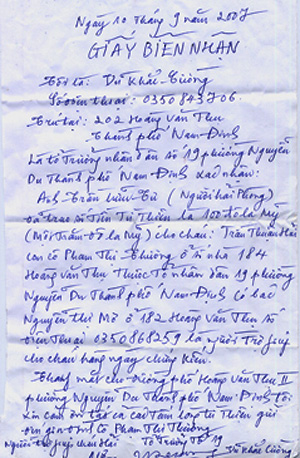 Ngày 10 tháng 9 năm 2007
GIẤY BIÊN NHẬN
Tôi là: Vũ Khắc Cường
Số điện thoại: 0350843706.
Trú tại: 202 Hoàng Văn Thu
Thành phố Nam Định
Là tổ trưởng nhân dân số 19 phường Nguyễn
Du Thành phố Nam Định xác nhận:
Anh Trần Hữu Cừ (Người Hải Phòng)
đã trao số tiền Từ Thiện là 100 đô la Mỹ
(Một Trăm đô la Mỹ) cho cháu: Trần Thuận Hải
con cô Phạm Thị Thưởng ở số nhà 184
Hoàng Văn Thu Thuộc Tổ nhân dân 19 phường
Nguyễn Du Thành phố Nam Định có bác
Nguyễn Thị Mở ở 182 Hoàng Văn Thu số
điện thoại 0350868259 là người trợ giúp
cho cháu hàng ngày chứng kiến.
Thay mặt cho đường phố Hoàng Văn Thu II
phường Nguyễn Du Thành phố Nam Định tôi
xin cám ơn tất cả các tấm lòng từ thiện giúp
gia đình cô Phạm Thị Thưởng
Người trợ giúp cháu Hải Tổ Trưởng Tổ 19
Vũ Khắc Cường